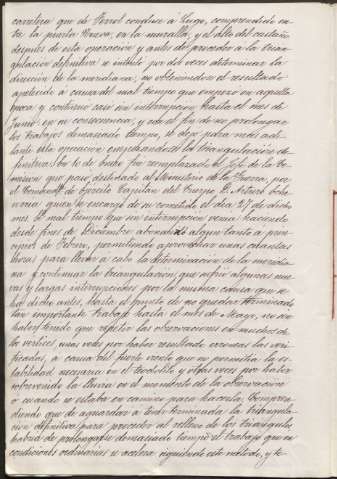 carretera que de Ferrol conduce á Lugo, comprendido en-
tre la puerta Nueva, en la muralla, y el alto del castaño
despues de esta operacion y antes de proceder á la trian-
gulacion definitiva se intentó por dos veces determinar la
direccion de la meridiana, no obteniendose el resultado
apetecido á causa del mal tiempo que empezó en aquella
época y continuó casi sin interrupcion hasta el mes de
Junio: en su consecuencia, y con el fin de no prolongar
los trabajos demasiado tiempo, se dejó para mas ade-
lante esta operacion empezandose la triangulacion de-
finitiva. En 10 de Enero fue reemplazado el Jefe de la Co-
mision que pasó destinado al Ministerio de la Guerra, por
el Comandte de Ejercito Capitan del Cuerpo D. Arturo
quien se encargó de su cometido el dia 27 de dicho
mes. El mal tiempo que sin interrupcion venia haciendo
desde fines de Diciembre abonanzó algun tanto á prin-
cipios de Febrero, permitiendo aprovechar unas cuantas
horas para llevar á cabo la determinacion de la meridia-
na y continuar la triangulacion, que sufrió algunas nue-
vas y largas interrupciones por la misma causa que se
ha dicho antes, hasta el punto de no quedar terminado
tan importante trabajo hasta el mes de Mayo, no sin
haber tenido que repetir las observaciones en muchos de
los vertices, unas veces por haber resultado erroneas las veri-
ficadas, á causa del fuerte viento que no permitia la es-
tabilidad necesaria en el teodolito y otras veces por haber
sobrevenido la lluvia en el momento de la observacion
ó cuando se estaba en camino para hacerla. Compren-
diendo que de aguardar á tener terminada la triangula-
cion definitiva para proceder al relleno de los triangulos
habria de prolongarse demasiado tiempo el trabajo que en
condiciones ordinarias se acelera siguiendo este método, y te-